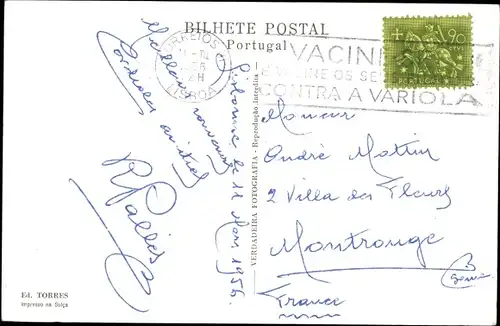 BILHETE POSTAL
Portugal
CORREIOS
LISBOA
VACINE
OS SE
CONTRA A VARIOLA
1$90
PORTUGAL
Lisbonne le 11 Mars 1956
Meilleurs souvenirs
Cordiales amitiés
VERDADEIRA FOTOGRAFIA - Reprodução interdita
Monsieur
André Mattin
2 Villa des Fleurs
Montrouge
Seine
France
Ed. TORRES
Impresso na Suíça